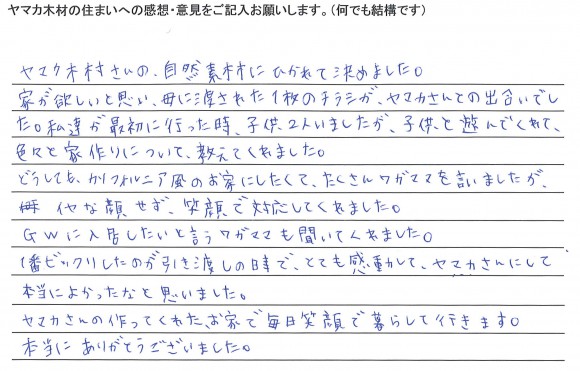 ヤマカ木材の住まいへの感想・意見をご記入お願いします。(何でも結構です)
ヤマカ木材さんの、自然素材にひかれて決めました。
家が欲しいと思い、母に渡された1枚のチラシが、ヤマカさんとの出合いでし
た。私達が最初に行った時、子供、2人いましたが、子供、と遊んでくれて、
色々と家作りについて、教えてくれました。
どうしても、カリフォルニア風のお家にしたくて、たくさんワガママを言いましたが、
イヤな顔せず、笑顔で対応してくれました。
GWに入居したいと言うワガママも聞いてくれました。
1番ビックリしたのが引き渡しの時で、とても感動かして、ヤマカさんにして
本当によかったなと思いました。
ヤマカさんの作ってくれた、お家で毎日笑顔で暮らして行きます。
本当にありがとうございました。